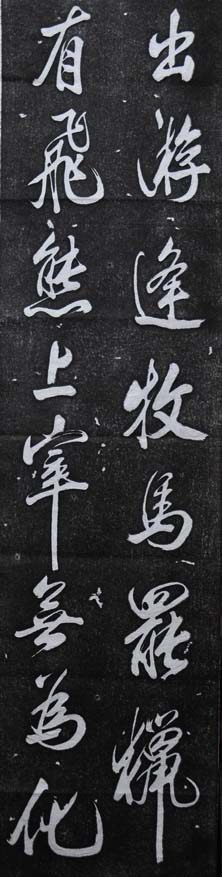 出游逢牧馬罷獵
有飛熊上宰無為化